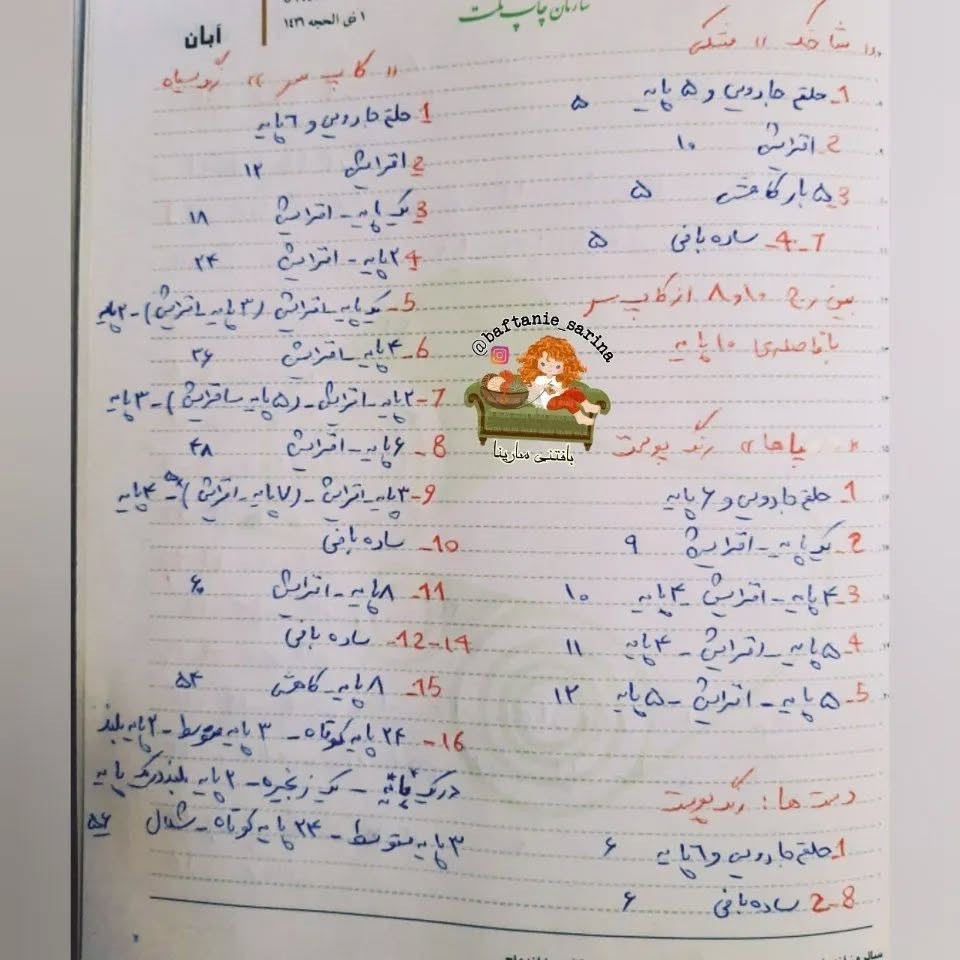 سازمان چاپ ملت
١ ذی الحجه ١٤٣٦
آبان
«شاخک» مشکی
1_ حلقه جادویی و ۵ پایه ۵
2_ افزایش ۱۰
3_ ۵ بار کاهش ۵
4-7_ ساده بافی ۵
بین رج ۱۰ و ۸ از کاپ سر
با فاصله‌ی ۱۰ پایه
«پاها» رنگ پوست
1_ حلقه جادویی و ۶ پایه
2_ یک پایه - افزایش ۹
3_ ۴ پایه - افزایش - ۴ پایه ۱۰
4_ ۵ پایه - افزایش - ۴ پایه ۱۱
5_ ۵ پایه - افزایش - ۵ پایه ۱۲
دست ها: رنگ پوست
1_ حلقه جادویی و ٦ پایه ۶
2-8_ ساده بافی ۶
«کاپ سر»
1 حلقه جادویی و ٦ پایه
2 افزایش ۱۲
3 یک پایه - افزایش ۱۸
4 ۲ پایه - افزایش ۲۴
5- یک پایه - افزایش (۳ پایه - افزایش) - ۲ پایه
6- ۴ پایه - افزایش ۳۶
7- ۲ پایه - افزایش - (۵ پایه - افزایش) - ۳ پایه
8- ۶ پایه - افزایش ۴۸
9- ۳ پایه - افزایش - (۷ پایه - افزایش) ۵× - ۴ پایه
10- ساده بافی
11- ۸ پایه - افزایش ۶۰
12-14- ساده بافی
15- ۸ پایه - کاهش ۵۴
16- ۲۴ پایه کوتاه - ۳ پایه متوسط - ۲ پایه بلند
در یک پایه - یک زنجیره - ۲ پایه بلند در یک پایه
۳ پایه متوسط - ۲۴ پایه کوتاه - شمال ۵۶
@baftanie_sarina
بافتنی سارینا